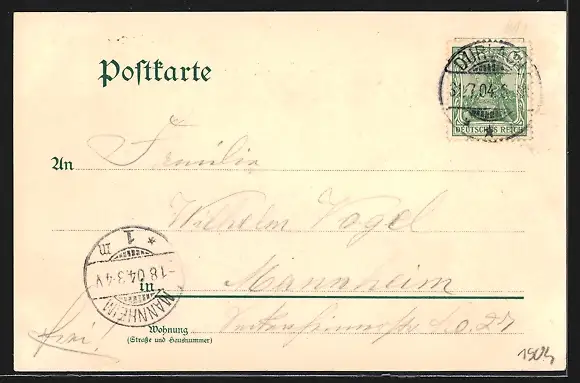 Postkarte
DURLACH
31.7.04. 5-
DEUTSCHES REICH
An Familie
Wilhelm Vogel
* 1 m
-1.8.04.3-4V
MANNHEIM
in Mannheim
Wohnung
(Straße und Hausnummer)
frei!
1904